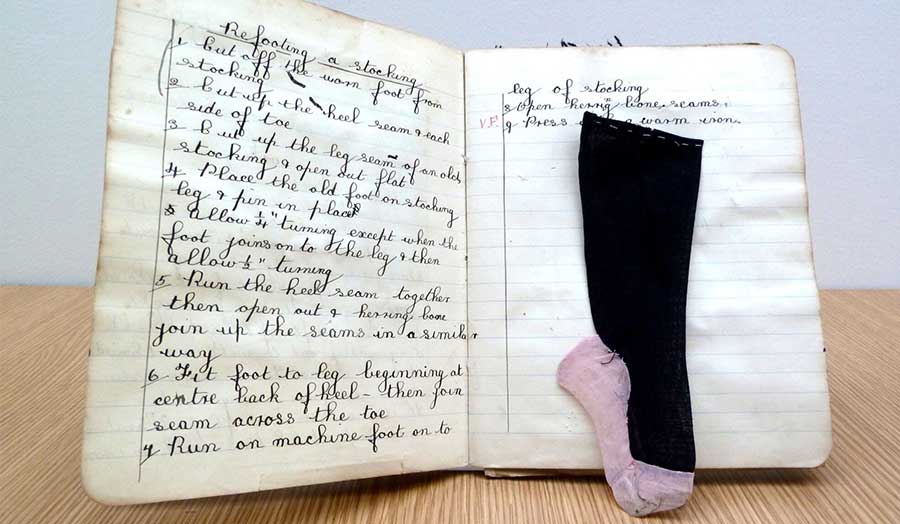 Refooting a stocking
1 Cut off the worn foot from
stocking
2 Cut up the heel seam & each
side of toe
3 Cut up the leg seam of an old
stocking & open out flat
4 Place the old foot on stocking
leg & pin in place
5 allow 1/4" turning except when the
foot joins on to the leg & then
allow 1/2" turning
5 Run the heel seam together
then open out & herring bone
join up the seams in a similar
way
6 Fit foot to leg beginning at
centre back of heel – then join
seam across the toe
7 Run on machine foot on to
leg of stocking
8 Open herring bone seams.
V.F. 9 Press a warm iron.